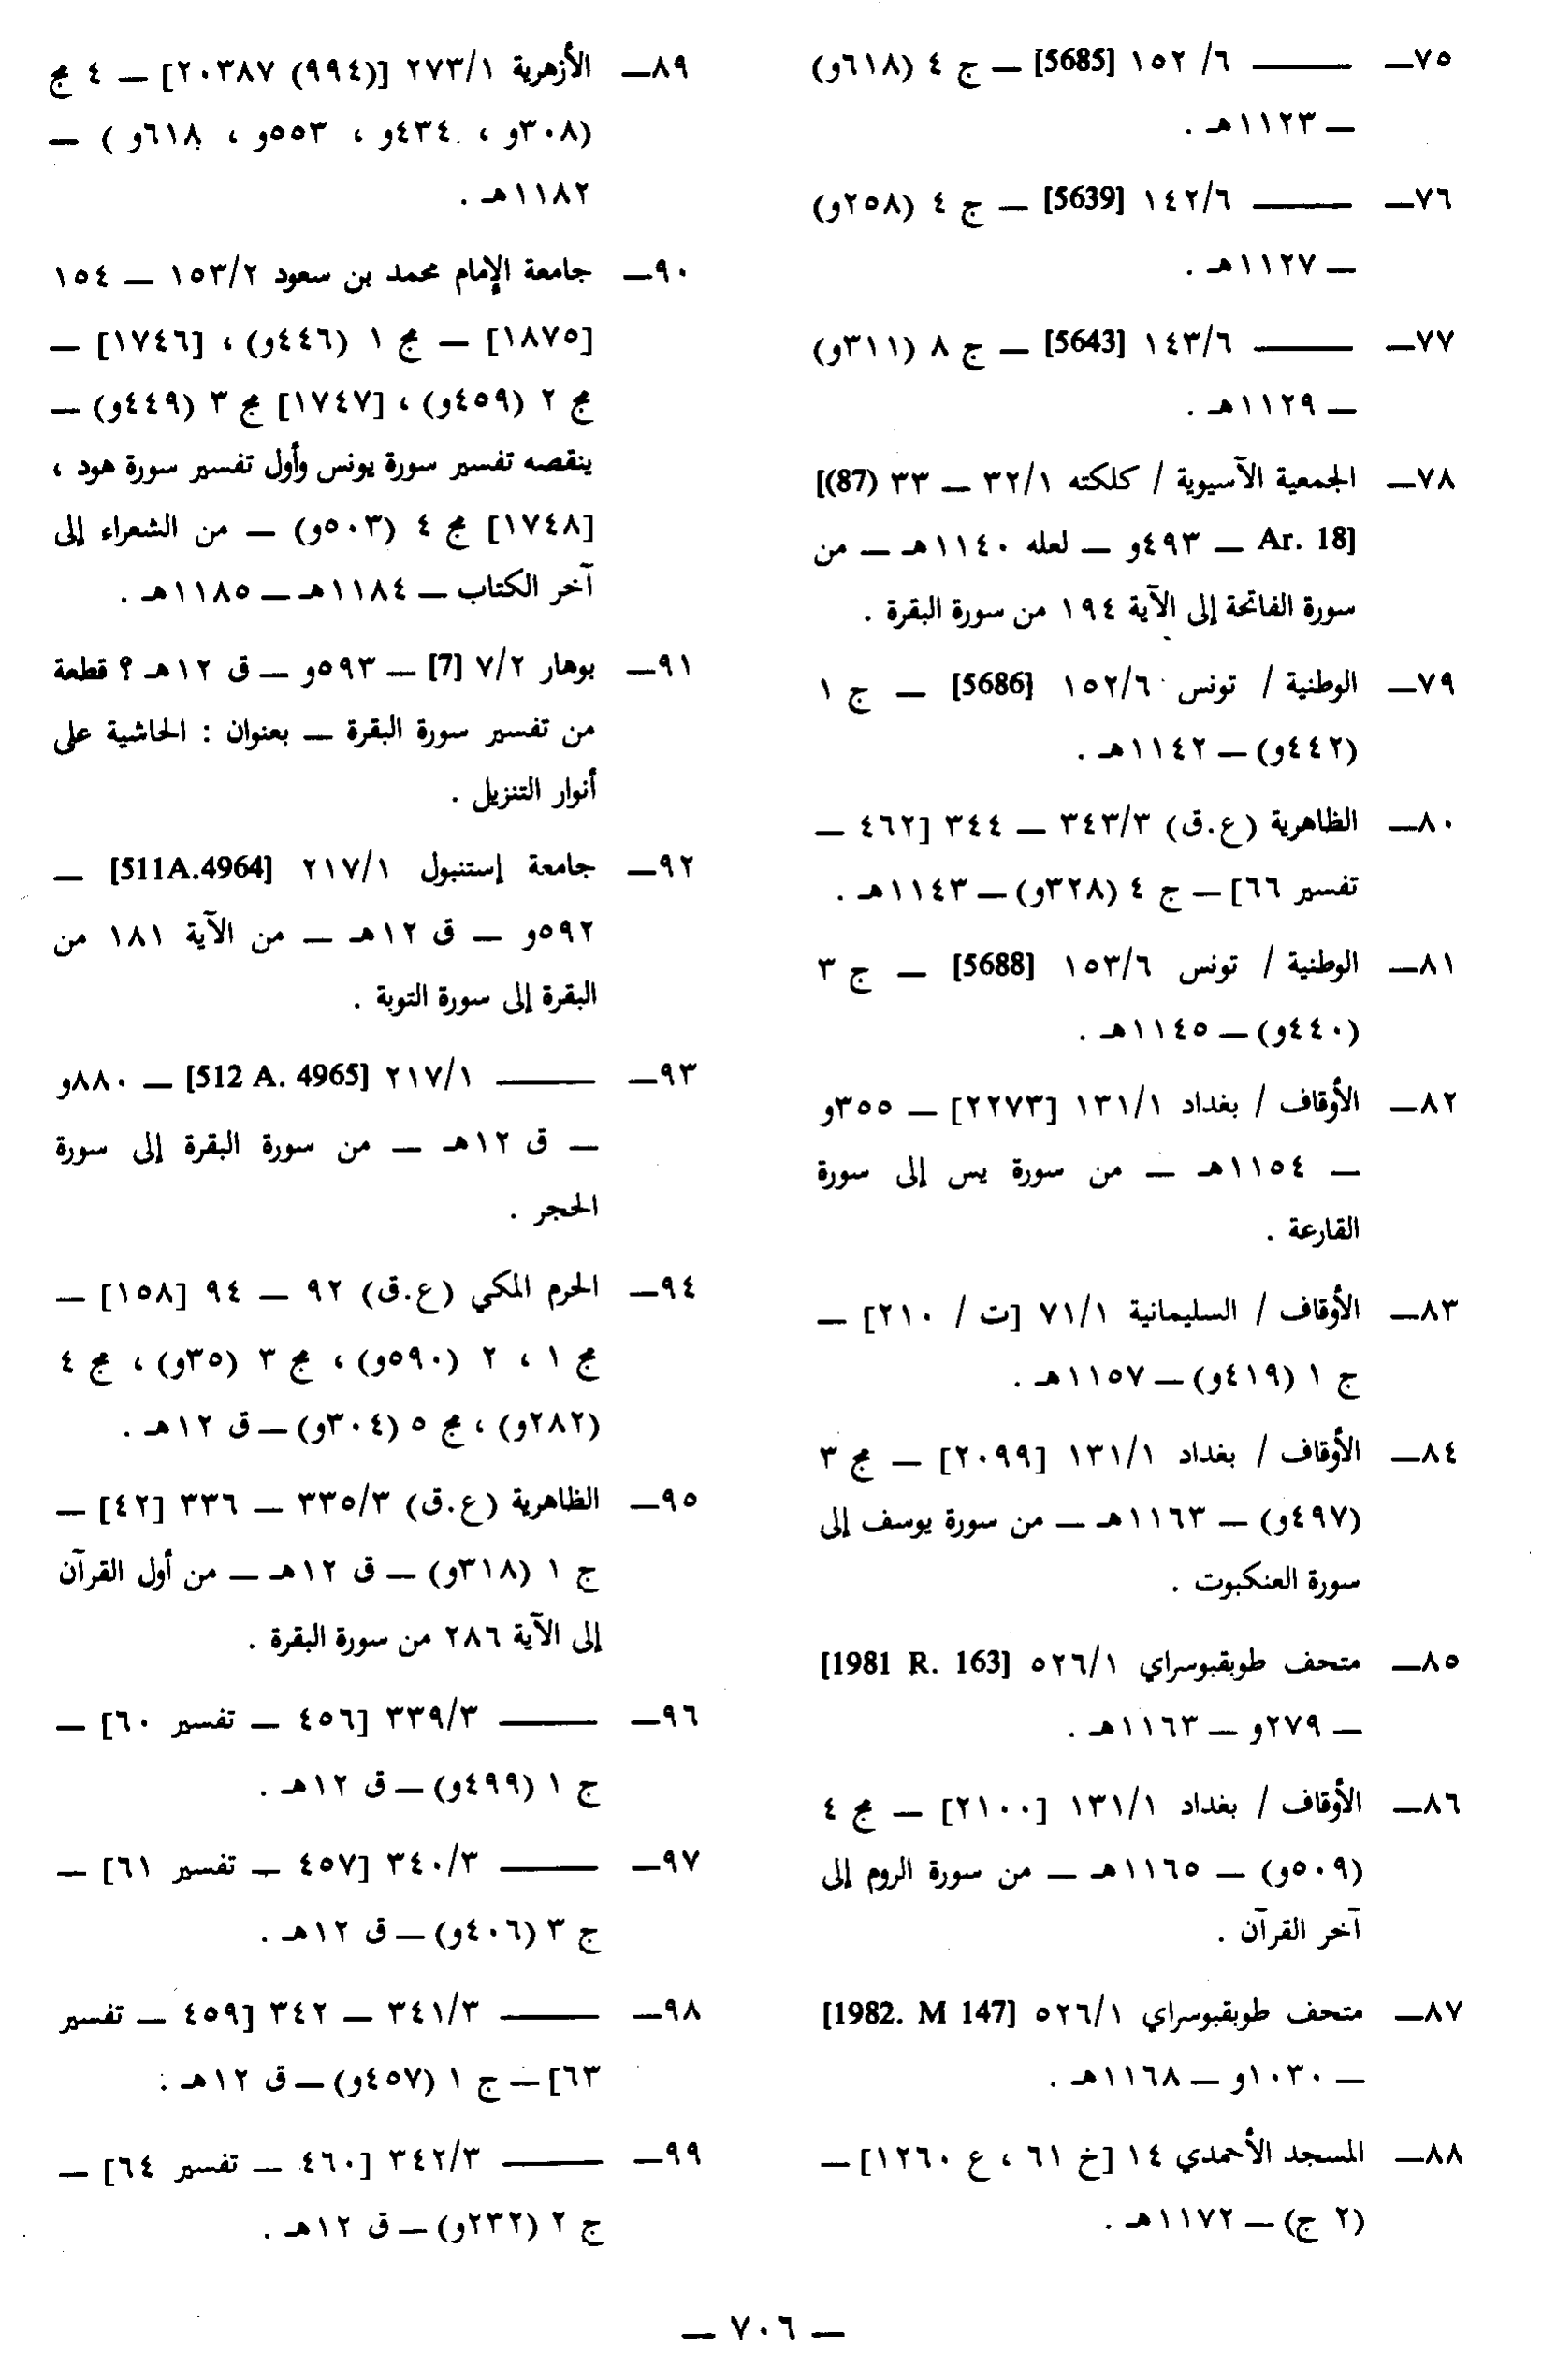 ٧٥— ——— ٦/ ١٥٢ [5685] — ج ٤ (٦١٨و)
— ١١٢٣هـ .
٧٦— ——— ١٤٢/٦ [5639] — ج ٤ (٢٥٨و)
— ١١٢٧هـ .
٧٧— ——— ١٤٣/٦ [5643] — ج ٨ (٣١١و)
— ١١٢٩هـ .
٧٨— الجمعية الآسيوية / كلكته ٣٢/١ — ٣٣ (87)]
Ar. 18] — ٤٩٣و — لعله ١١٤٠هـ — من
سورة الفاتحة إلى الآية ١٩٤ من سورة البقرة .
٧٩— الوطنية / تونس ١٥٢/٦ [5686] — ج ١
(٤٤٢و) — ١١٤٢هـ .
٨٠— الظاهرية (ع.ق) ٣٤٣/٣ — ٣٤٤ [٤٦٢ —
تفسير ٦٦] — ج ٤ (٣٢٨و) — ١١٤٣هـ .
٨١— الوطنية / تونس ١٥٣/٦ [5688] — ج ٣
(٤٤٠و) — ١١٤٥هـ .
٨٢— الأوقاف / بغداد ١٣١/١ [٢٢٧٣] — ٣٥٥و
— ١١٥٤هـ — من سورة يس إلى سورة
القارعة .
٨٣— الأوقاف / السليمانية ٧١/١ [ت / ٢١٠] —
ج ١ (٤١٩و) — ١١٥٧هـ .
٨٤— الأوقاف / بغداد ١٣١/١ [٢٠٩٩] — مج ٣
(٤٩٧و) — ١١٦٣هـ — من سورة يوسف إلى
سورة العنكبوت .
٨٥— متحف طوبقبوسراي ٥٢٦/١ [1981 R. 163]
— ٢٧٩و — ١١٦٣هـ .
٨٦— الأوقاف / بغداد ١٣١/١ [٢١٠٠] — مج ٤
(٥٠٩و) — ١١٦٥هـ — من سورة الروم إلى
آخر القرآن .
٨٧— متحف طوبقبوسراي ٥٢٦/١ [1982. M 147]
— ١٠٣٠و — ١١٦٨هـ .
٨٨— المسجد الأحمدي ١٤ [خ ٦١ ، ع ١٢٦٠] —
(٢ ج) — ١١٧٢هـ .
٨٩— الأزهرية ٢٧٣/١ [(٩٩٤) ٢٠٣٨٧] — ٤ مج
(٣٠٨و ، ٤٣٤و ، ٥٥٣و ، ٦١٨و ) —
١١٨٢هـ .
٩٠— جامعة الإمام محمد بن سعود ١٥٣/٢ — ١٥٤
[١٨٧٥] — مج ١ (٤٤٦و) ، [١٧٤٦] —
مج ٢ (٤٥٩و) ، [١٧٤٧] مج ٣ (٤٤٩و) —
ينقصه تفسير سورة يونس وأول تفسير سورة هود ،
[١٧٤٨] مج ٤ (٥٠٣و) — من الشعراء إلى
آخر الكتاب — ١١٨٤هـ — ١١٨٥هـ .
٩١— بوهار ٧/٢ [7] — ٥٩٣و — ق ١٢هـ ؟ قطعة
من تفسير سورة البقرة — بعنوان : الحاشية على
أنوار التنزيل .
٩٢— جامعة إستنبول ٢١٧/١ [511A.4964] —
٥٩٢و — ق ١٢هـ — من الآية ١٨١ من
البقرة إلى سورة التوبة .
٩٣— ——— ٢١٧/١ [512 A. 4965] — ٨٨٠و
— ق ١٢هـ — من سورة البقرة إلى سورة
الحجر .
٩٤— الحرم المكي (ع.ق) ٩٢ — ٩٤ [١٥٨] —
مج ١ ، ٢ (٥٩٠و) ، مج ٣ (٣٥و) ، مج ٤
(٢٨٢و) ، مج ٥ (٣٠٤و) — ق ١٢هـ .
٩٥— الظاهرية (ع.ق) ٣٣٥/٣ — ٣٣٦ [٤٢] —
ج ١ (٣١٨و) — ق ١٢هـ — من أول القرآن
إلى الآية ٢٨٦ من سورة البقرة .
٩٦— ——— ٣٣٩/٣ [٤٥٦ — تفسير ٦٠] —
ج ١ (٤٩٩و) — ق ١٢هـ .
٩٧— ——— ٣٤٠/٣ [٤٥٧ — تفسير ٦١] —
ج ٣ (٤٠٦و) — ق ١٢هـ .
٩٨— ——— ٣٤١/٣ — ٣٤٢ [٤٥٩ — تفسير
٦٣] — ج ١ (٤٥٧و) — ق ١٢هـ .
٩٩— ——— ٣٤٢/٣ [٤٦٠ — تفسير ٦٤] —
ج ٢ (٢٣٢و) — ق ١٢هـ .
— ٧٠٦ —